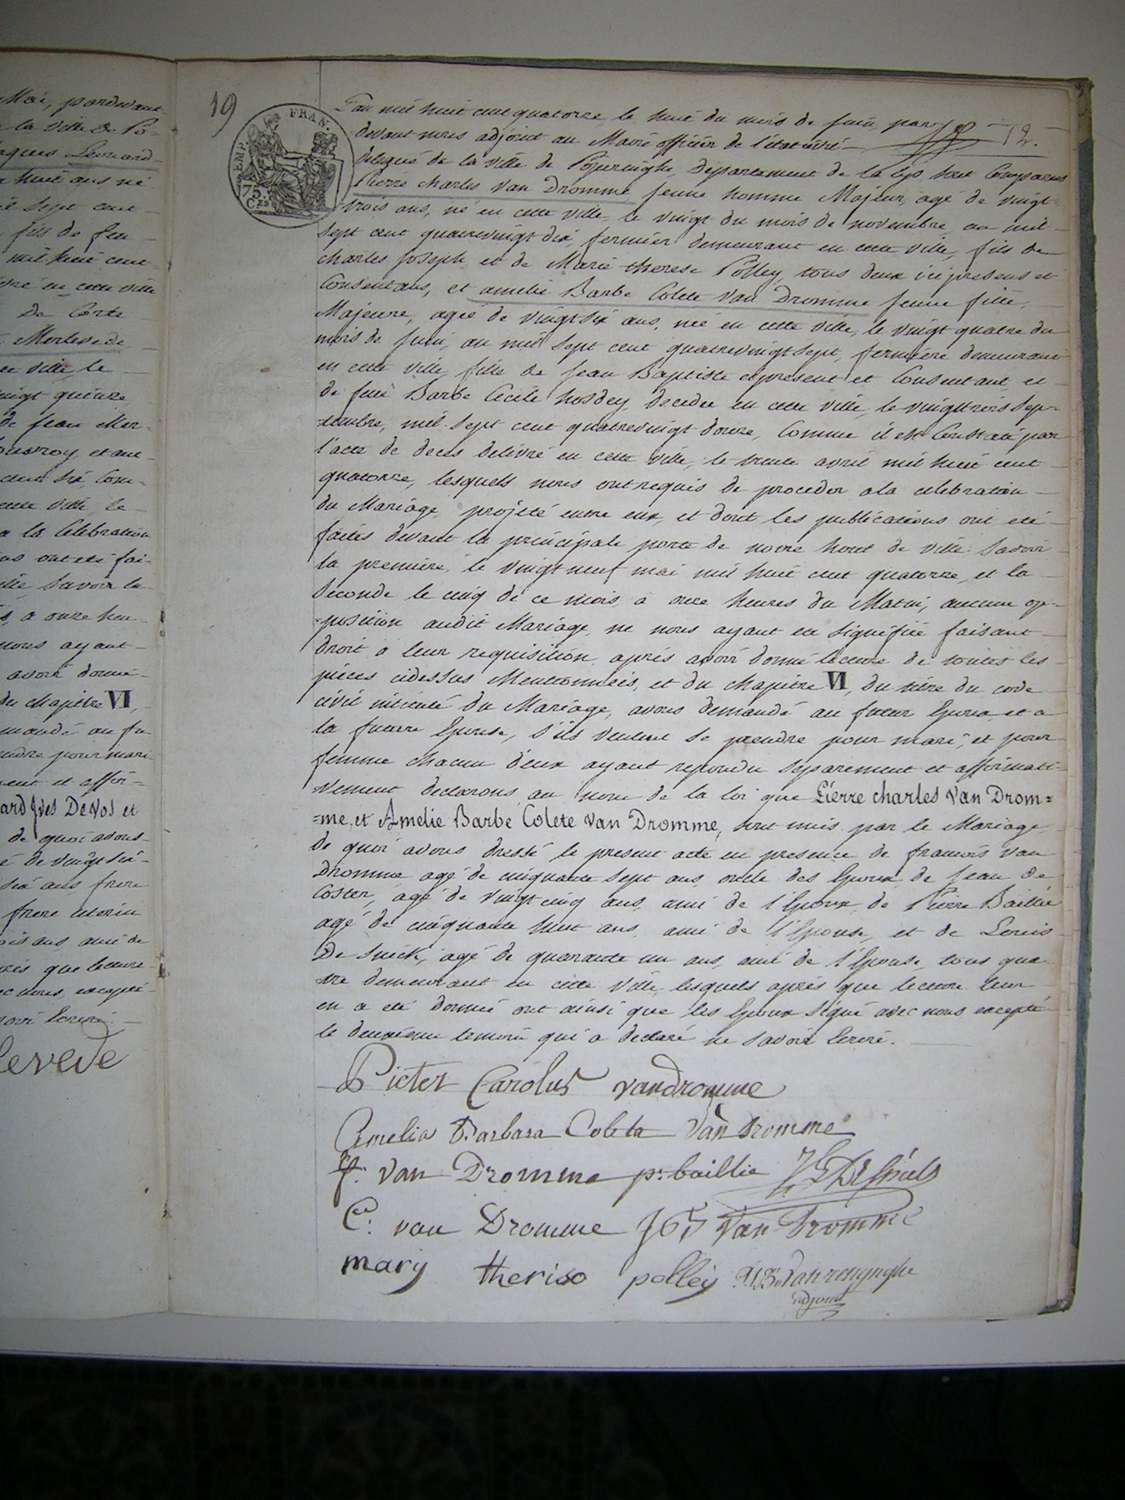 Mai, pardevant
la ville de Po-
Jacques Leonard
huit ans né
sept cent
fils de feu
mil huit cent
en cette ville
De Corte
Merlevede
ville, le
vingt quinze
de Jean Mer-
et au-
cette ville, le
a la Celebration
ont été fai-
ville, savoir la
, a onze heu-
nous ayant
avoir donné
du chapitre VI
mandé au fu-
prendre pour mari
ment et affir-
ard Yves De Vos et
de quoi avons
é de vingt six
six ans frere
frere uterin
ans, ami de
que lecture
nous, excepté
savoir Ecrire
levede
19
TIMP. FRAN.
75
C.es
72.
L'an mil huit cent quatorze, le huit du mois de juin, par
devant nous adjoint au Maire officier de l'état civil
délégué de la ville de Poperinghe, Département de la Lys sont Comparus
Pierre Charles Van Dromme jeune homme Majeur, agé de vingt
trois ans, né en cette ville, le vingt du mois de novembre, an mil
sept cent quatrevingt dix, fermier demeurant en cette ville, fils de
Charles Joseph et de Marie therese Polley, tous deux ici présens et
Consentans, et amelie Barbe Colete Van Dromme jeune fille,
Majeure, agée de vingt six ans, née en cette ville, le vingt quatre du
mois de juin, an mil sept cent quatrevingt sept, fermière demeurant
en cette ville, fille de Jean Baptiste ci présent et Consentant et
de feue Barbe Cécile hosdey, decedée en cette ville, le vingt trois sep-
tembre, mil sept cent quatrevingt douze, Comme il est Constaté par
l'acte de decès delivré en cette ville, le trente avril mil huit cent
quatorze, lesquels nous ont requis de proceder a la celebration
du Mariage projeté entre eux, et dont les publications ont été
faites devant la principale porte de notre hotel de ville. savoir
la première, le vingt neuf mai mil huit cent quatorze, et la
Seconde le cinq de ce mois, à onze heures du Matin, aucune op-
position audit Mariage, ne nous ayant été signifiée faisant
Droit a leur requisition, après avoir donné lecture de toutes les
pièces cidessus Mentionnées, et du chapitre VI, du titre du code
civil intitulé du Mariage, avons demandé au futur Epoux et a
la future Epouse, s'ils veulent se prendre pour mari, et pour
femme chacun d'eux ayant repondu separement et affirmati-
vement declarons au nom de la loi que Pierre Charles Van Drom-
-me, et Amelie Barbe Colete Van Dromme, sont unis par le Mariage
De quoi avons dressé le present acte en presence de francois van
Dromme agé de cinquante sept ans, oncle des Epoux de Jean de
Coster, agé de vingt cinq ans, ami de l'Epoux, de Pierre Baillie
agé de cinquante huit ans, ami de l'Epouse, et de Louis
De Snick, agé de quarante un ans, ami de l'Epouse, tous qua-
tre demeurant en cette ville, lesquels après que lecture leur
en a été donnée ont ainsi que les Epoux signé avec nous excepté
le deuxième temoin qui a declaré ne savoir Ecrire.
Pieter Carolus vandromme
Amelia Barbara Coleta Van Dromme
f. van Dromme p. baillie
C. van Dromme Van Dromme
mary theriso polley vanrenynghe
adjoint